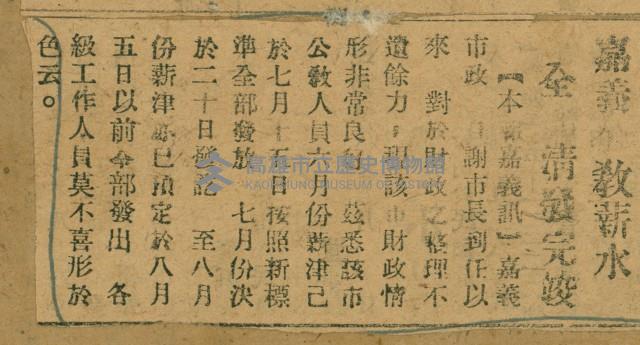 嘉義 教薪水
全 清發完竣
【本 嘉義訊】嘉義
市政 謝市長到任以
來 對於財政之整理不
遺餘力,現該市財政情
形非常良好 茲悉該市
公教人員六月份薪津已
於七月十五日按照新標
準全部發放 七月份決
於二十日發訖 至八月
份薪津亦已預定於八月
五日以前全部發出 各
級工作人員莫不喜形於
色云。
高雄市立歷史博物館
KAOHSIUNG MUSEUM OF HISTORY